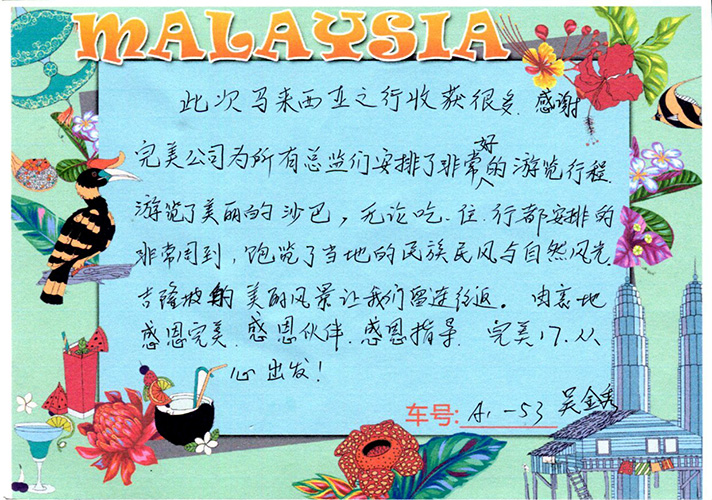 MALAYSIA
此次马来西亚之行收获很多.感谢
完美公司为所有总监们安排了非常好的游览行程.
游览了美丽的沙巴，无论吃.住.行都安排的
非常周到，饱览了当地的民族民风与自然风光.
吉隆坡的美丽风景让我们留连忘返。由衷地
感恩完美.感恩伙伴.感恩指导.完美17.从
心出发！
车号: A1-53 吴金秀